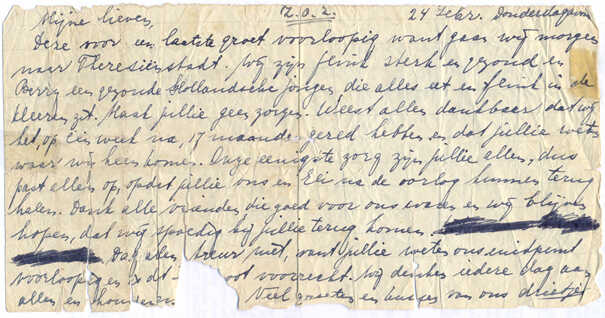 Mijne lieven, Z.O.Z. 24 Febr. Donderdagavond
Deze voor een laatste groet voorloopig want gaan wij morgen
naar Theresiënstadt. Wij zijn flink sterk en gezond en
Berry een gezonde Hollandsche jongen die alles eet en flink in de
kleeren zit. Maak jullie geen zorgen. Weest allen dankbaar dat wij
het, op één week na, 17 maanden gered hebben en dat jullie weten
waar wij heen komen. Onze eenigste zorg zijn jullie allen, dus
past allen op, opdat jullie ons en Eli na de oorlog kunnen terug
halen. Dank alle vrienden die goed voor ons waren en wij blijven
hopen, dat wij spoedig bij jullie terug komen.
Dag allen treur niet, want jullie weten ons eindpunt
voorloopig en is dt- oot voorrecht. Wij denken iedere dag aan
allen en
Veel groeten en kussen van ons drietjes